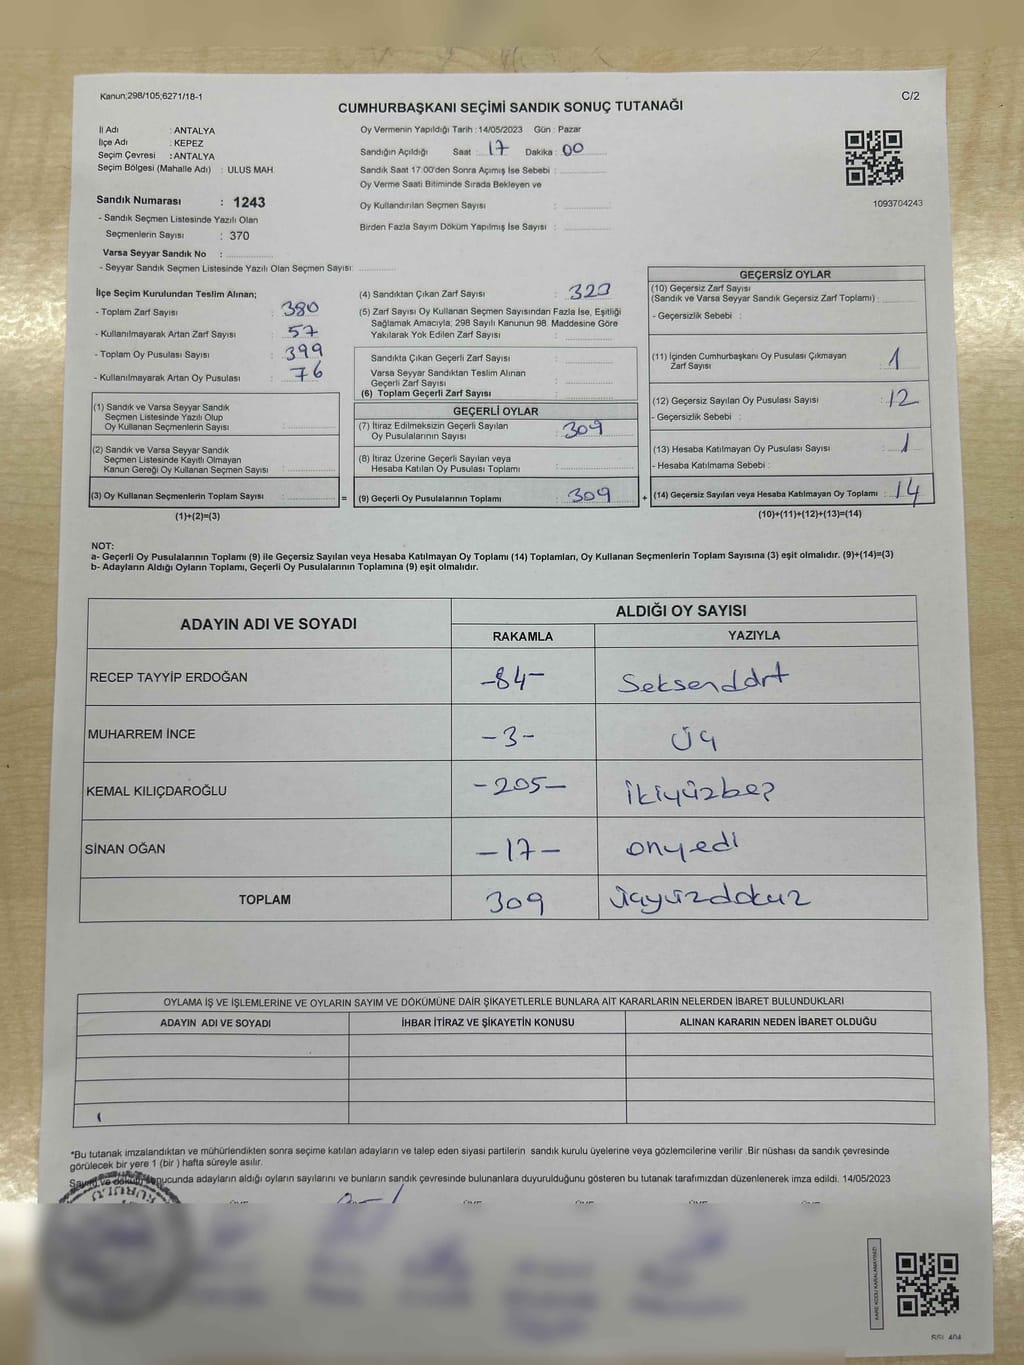 Kanun;298/105;6271/18-1
C/2
CUMHURBAŞKANI SEÇİMİ SANDIK SONUÇ TUTANAĞI
İl Adı : ANTALYA
İlçe Adı : KEPEZ
Seçim Çevresi : ANTALYA
Seçim Bölgesi (Mahalle Adı) : ULUS MAH.
Sandık Numarası : 1243
- Sandık Seçmen Listesinde Yazılı Olan
Seçmenlerin Sayısı : 370
Varsa Seyyar Sandık No :
- Seyyar Sandık Seçmen Listesinde Yazılı Olan Seçmen Sayısı:
Oy Vermenin Yapıldığı Tarih : 14/05/2023 Gün : Pazar
Sandığın Açıldığı Saat : 17 Dakika : 00
Sandık Saat 17:00'den Sonra Açımış İse Sebebi :
Oy Verme Saati Bitiminde Sırada Bekleyen ve
Oy Kullandırılan Seçmen Sayısı :
Birden Fazla Sayım Döküm Yapılmış İse Sayısı :
1093704243
İlçe Seçim Kurulundan Teslim Alınan;
- Toplam Zarf Sayısı : 380
- Kullanılmayarak Artan Zarf Sayısı : 57
- Toplam Oy Pusulası Sayısı : 399
- Kullanılmayarak Artan Oy Pusulası : 76
(1) Sandık ve Varsa Seyyar Sandık
Seçmen Listesinde Yazılı Olup
Oy Kullanan Seçmenlerin Sayısı :
(2) Sandık ve Varsa Seyyar Sandık
Seçmen Listesinde Kayıtlı Olmayan
Kanun Gereği Oy Kullanan Seçmen Sayısı :
(3) Oy Kullanan Seçmenlerin Toplam Sayısı :
(1)+(2)=(3)
=
(4) Sandıktan Çıkan Zarf Sayısı : 323
(5) Zarf Sayısı Oy Kullanan Seçmen Sayısından Fazla İse, Eşitliği
Sağlamak Amacıyla; 298 Sayılı Kanunun 98. Maddesine Göre
Yakılarak Yok Edilen Zarf Sayısı :
Sandıkta Çıkan Geçerli Zarf Sayısı :
Varsa Seyyar Sandıktan Teslim Alınan
Geçerli Zarf Sayısı :
(6) Toplam Geçerli Zarf Sayısı :
GEÇERLİ OYLAR
(7) İtiraz Edilmeksizin Geçerli Sayılan
Oy Pusulalarının Sayısı : 309
(8) İtiraz Üzerine Geçerli Sayılan veya
Hesaba Katılan Oy Pusulası Toplamı :
(9) Geçerli Oy Pusulalarının Toplamı : 309
+
GEÇERSİZ OYLAR
(10) Geçersiz Zarf Sayısı
(Sandık ve Varsa Seyyar Sandık Geçersiz Zarf Toplamı) :
- Geçersizlik Sebebi :
(11) İçinden Cumhurbaşkanı Oy Pusulası Çıkmayan
Zarf Sayısı : 1
(12) Geçersiz Sayılan Oy Pusulası Sayısı : 12
- Geçersizlik Sebebi :
(13) Hesaba Katılmayan Oy Pusulası Sayısı : 1
- Hesaba Katılmama Sebebi :
(14) Geçersiz Sayılan veya Hesaba Katılmayan Oy Toplamı : 14
(10)+(11)+(12)+(13)=(14)
NOT:
a- Geçerli Oy Pusulalarının Toplamı (9) ile Geçersiz Sayılan veya Hesaba Katılmayan Oy Toplamı (14) Toplamları, Oy Kullanan Seçmenlerin Toplam Sayısına (3) eşit olmalıdır. (9)+(14)=(3)
b- Adayların Aldığı Oyların Toplamı, Geçerli Oy Pusulalarının Toplamına (9) eşit olmalıdır.
ADAYIN ADI VE SOYADI ALDIĞI OY SAYISI
RAKAMLA YAZIYLA
RECEP TAYYİP ERDOĞAN -84- Seksenddrt
MUHARREM İNCE -3- üç
KEMAL KILIÇDAROĞLU -205- ikiyüzbeş
SİNAN OĞAN -17- onyedi
TOPLAM 309 üçyüzdokuz
OYLAMA İŞ VE İŞLEMLERİNE VE OYLARIN SAYIM VE DÖKÜMÜNE DAİR ŞİKAYETLERLE BUNLARA AİT KARARLARIN NELERDEN İBARET BULUNDUKLARI
ADAYIN ADI VE SOYADI İHBAR İTİRAZ VE ŞİKAYETİN KONUSU ALINAN KARARIN NEDEN İBARET OLDUĞU
*Bu tutanak imzalandıktan ve mühürlendikten sonra seçime katılan adayların ve talep eden siyasi partilerin sandık kurulu üyelerine veya gözlemcilerine verilir .Bir nüshası da sandık çevresinde
görülecek bir yere 1 (bir ) hafta süreyle asılır.
Sayım ve döküm sonucunda adayların aldığı oyların sayılarını ve bunların sandık çevresinde bulunanlara duyurulduğunu gösteren bu tutanak tarafımızdan düzenlenerek imza edildi. 14/05/2023
KARE KODU KARALAMAYINIZ!